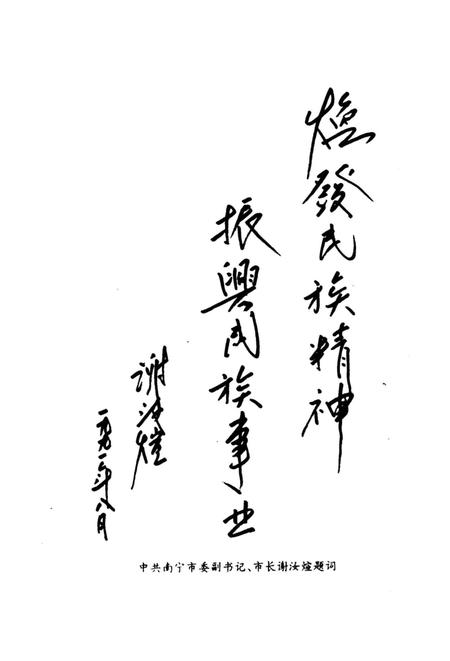 焕發民族精神
振興民族事业
谢汝煊
一九九一年八月
中共南宁市委副书记、市长谢汝煊题词